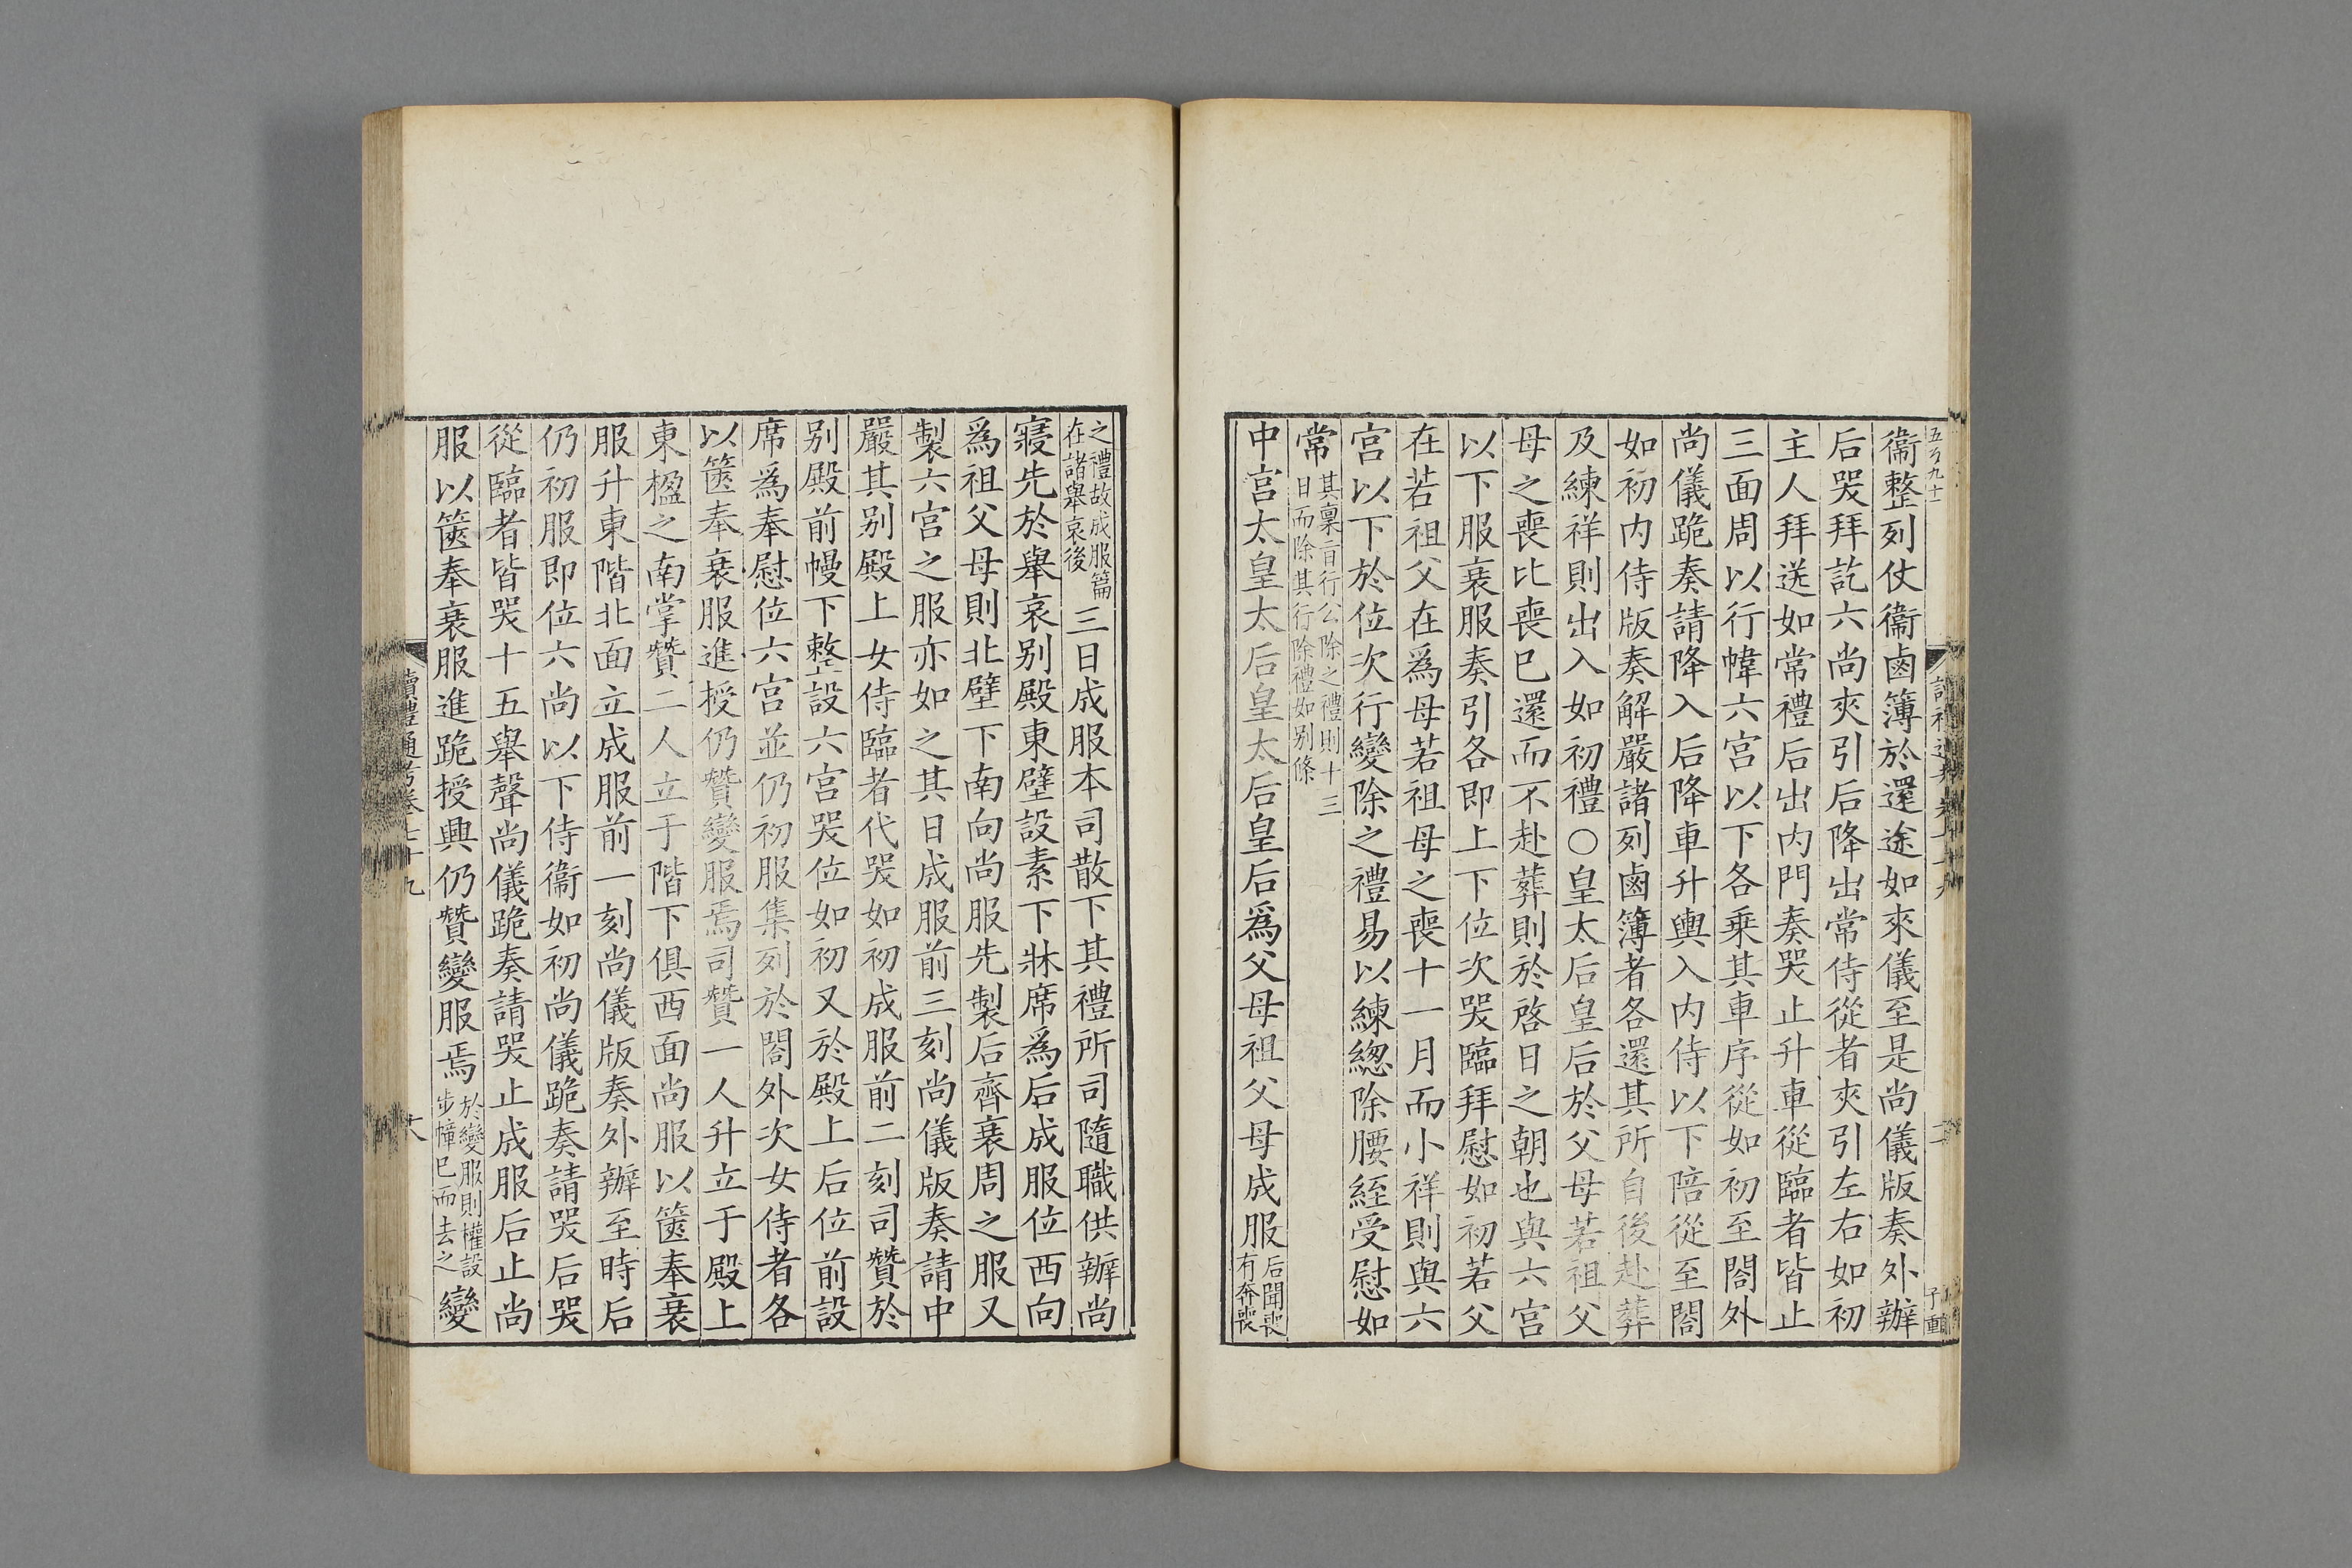 衞整列仗衞鹵簿於還途如來儀至是尚儀版奏外辦
后哭拜訖六尚夾引后降出常侍從者夾引左右如初
主人拜送如常禮后出内門奏哭止升車從臨者皆止
三面周以行幃六宮以下各乗其車序從如初至閤外
尚儀跪奏請降入后降車升輿入内侍以下陪從至閤
如初内侍版奏解嚴諸列鹵簿者各還其所自後赴葬
及練祥則出入如初禮○皇太后皇后於父母若祖父
母之喪比喪已還而不赴葬則於啓日之朝也與六宮
以下服衰服奏引各即上下位次哭臨拜慰如初若父
在若祖父在爲母若祖母之喪十一月而小祥則與六
宮以下於位次行變除之禮易以練緦除腰絰受慰如
常其稟旨行公除之禮則十三
日而除其行除禮如别條
中宮太皇太后皇太后皇后爲父母祖父母成服后聞喪
有奔喪
之禮故成服篇
在諸舉哀後三日成服本司散下其禮所司隨職供辦尚
寢先於舉哀别殿東壁設素下牀席爲后成服位西向
爲祖父母則北壁下南向尚服先製后齊衰周之服又
製六宮之服亦如之其日成服前三刻尚儀版奏請中
嚴其别殿上女侍臨者代哭如初成服前二刻司贊於
别殿前幔下整設六宮哭位如初又於殿上后位前設
席爲奉慰位六宮並仍初服集列於閤外次女侍者各
以篋奉衰服進授仍贊變服焉司贊一人升立于殿上
東楹之南掌贊二人立于階下俱西面尚服以篋奉衰
服升東階北面立成服前一刻尚儀版奏外辦至時后
仍初服即位六尚以下侍衞如初尚儀跪奏請哭后哭
從臨者皆哭十五舉聲尚儀跪奏請哭止成服后止尚
服以篋奉衰服進跪授興仍贊變服焉於變服則權設
步幛已而去之變
讀禮通考卷七十九